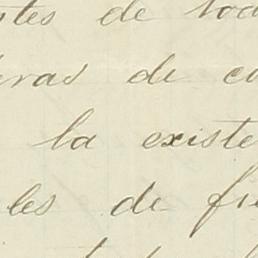 tes de tod
eras de co
la existe
les de fu